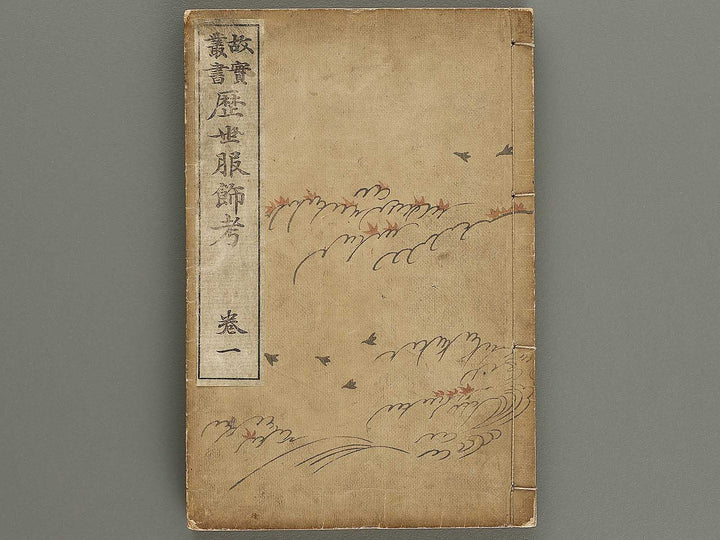 故實
叢書
歴世服飾考
卷一